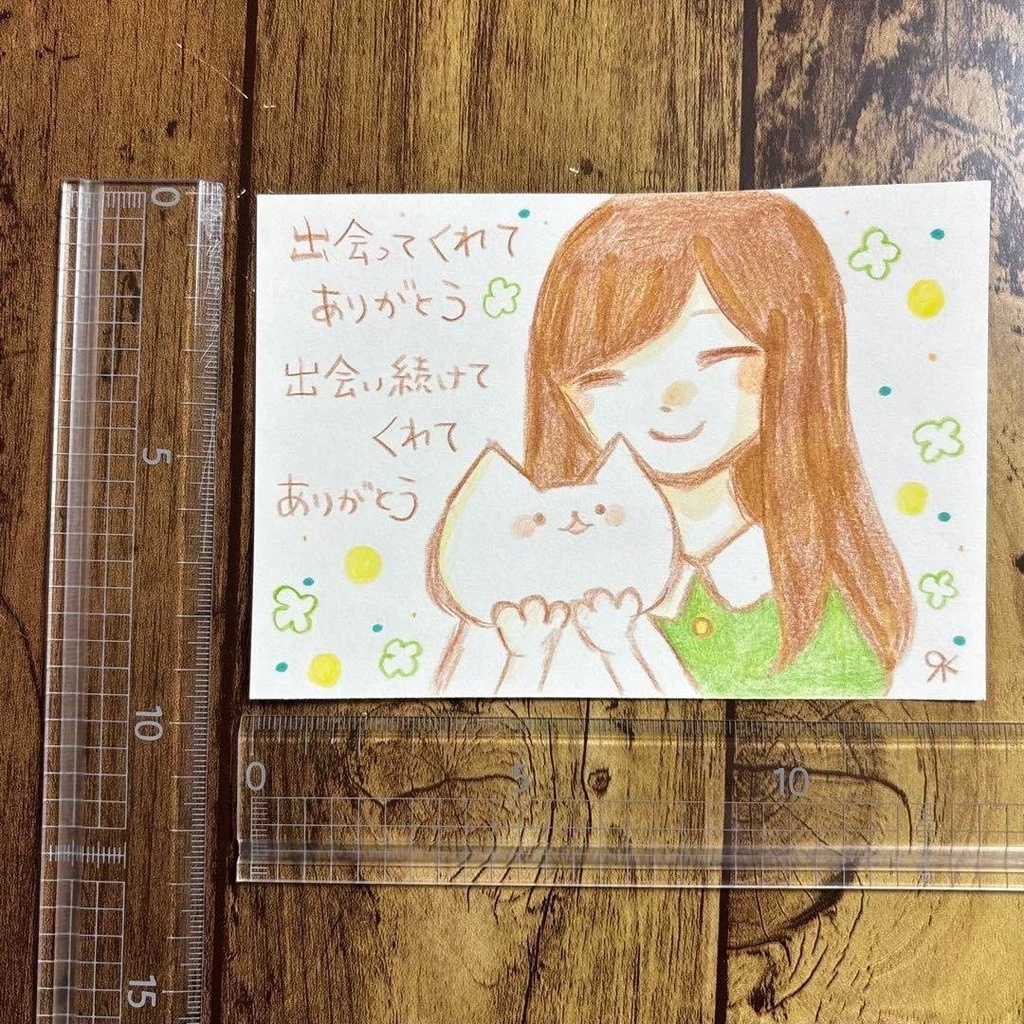 出会ってくれて
ありがとう
出会い続けて
くれて
ありがとう
0
5
10
15
0
5
10